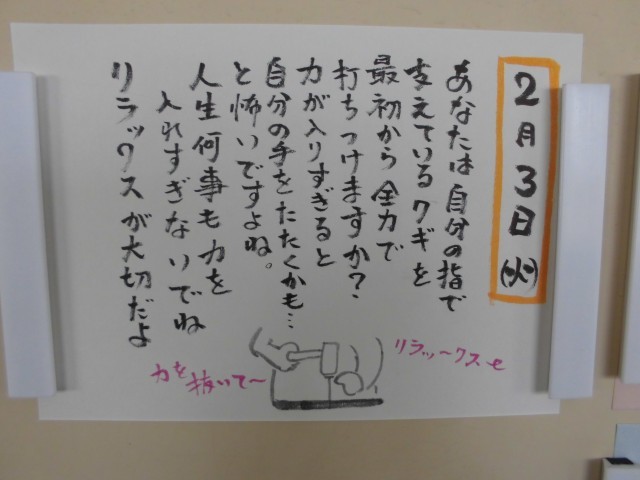 2月3日(火)
あなたは自分の指で
支えているクギを
最初から全力で
打ちつけますか？
力が入りすぎると
自分の手をたたくかも…
と怖いですよね。
人生何事も力を
入れすぎないでね
リラックスが大切だよ
リラッ〜クスせ
力を
抜いて〜